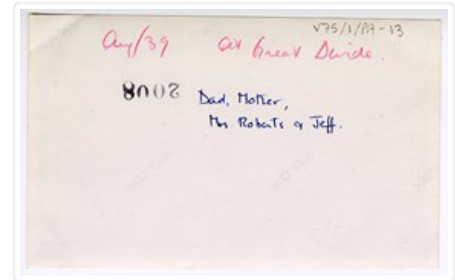 V75/1/PA-13
Aug/39 At Great Divide.
2008
Dad, Mother,
Mrs Roberts & Jeff.